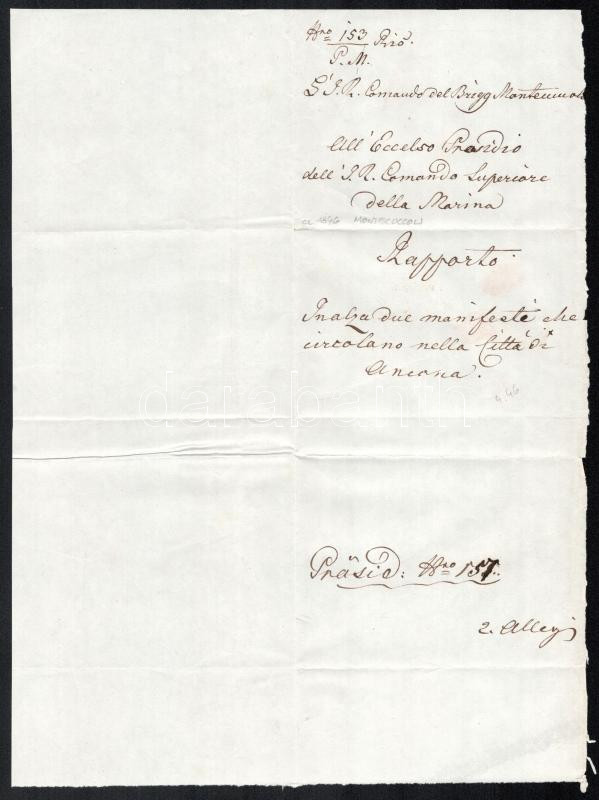 Nro 153 Riò.
P. M.
L'I. R. Comando del Brigg Montecuccoli
All'Eccelso Presidio
dell'I. R. Comando Superiore
della Marina
ca 1846 MONTECUCCOLI
Rapporto.
Inalza due manifesti che
circolano nella Città di
Ancona.
darabanth
4.46
Präsid: Nro 157.
2. Alleg